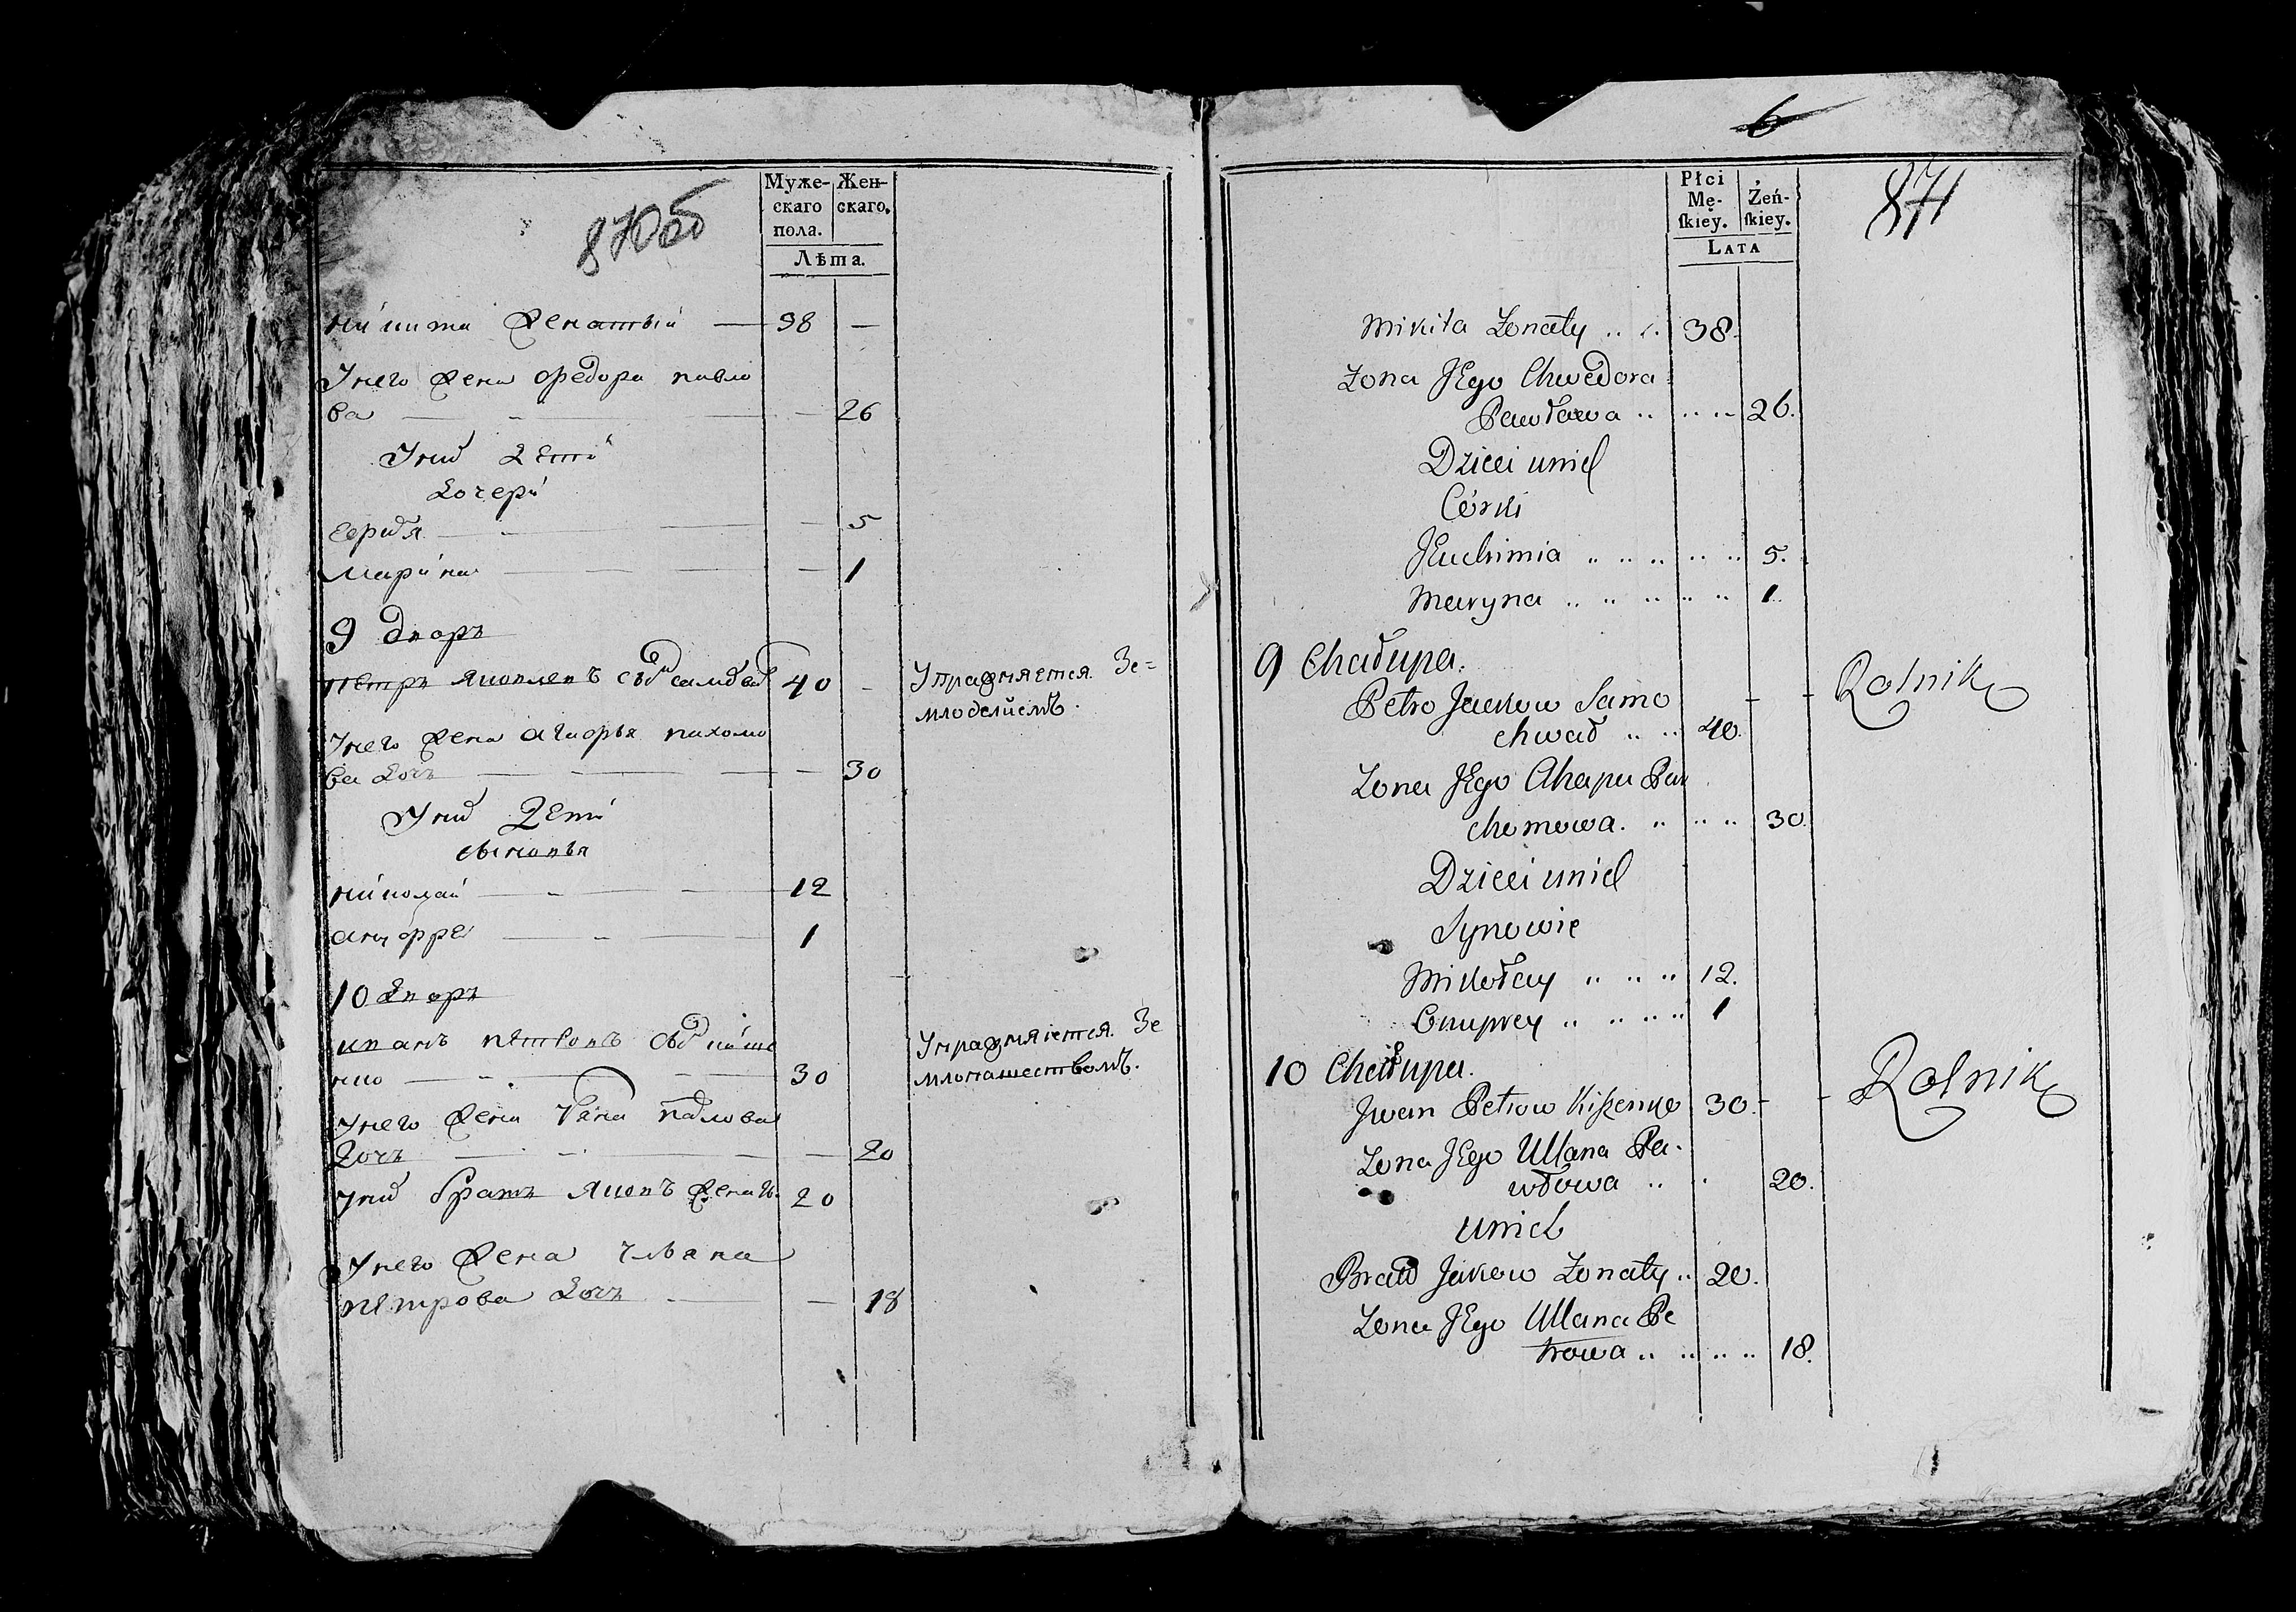 870об
Муже-
скаго
пола.
Жен-
скаго.
Лѣта.
Никита женатый — 38 —
У него жена Федора павло
ва — 26
У них дети
дочери
— 5
Марина — 1
9 дворъ
Петръ самохвал 40 —
Упражняется Зе=
млоделием.
У него жена Агафья пахомо
ва дочь — 30
У них дети
сыновья
николай — 12
— 1
10 дворъ
иванъ петровъ
30
Упражняется Зе
млопашеством.
У него жена павлова
дочь — 20
У них братъ Яковъ женатъ 20
У него жена ульяна
петрова дочь — 18
6
871
Płci
Mę-
ſkiey.
Żeń-
ſkiey.
LATA
Mikita Zonaty .. .. 38.
Zona JEgo Chwedora
Pawłowa .. .. .. 26.
Dzieci unich
Córki
JEuchimia .. .. .. .. .. 5.
Maryna .. .. .. .. .. 1.
9 Chałupa.
Petro Jackow Samo
chwał .. .. 40.
Rolnik
Zona JEgo Ahapa Pa
chomowa. .. .. .. 30.
Dzieci unich
Synowie
Mikołay .. .. .. 12.
Onuprey .. .. .. .. 1
10 Chałupa.
Jwan Petrow Kiszenko 30.
Rolnik
Zona JEgo Ullana Pa-
włowa .. .. 20.
Unich
Brat Jakow Zonaty .. 20.
Zona JEgo Ullana Pe
trowa .. .. .. .. 18.